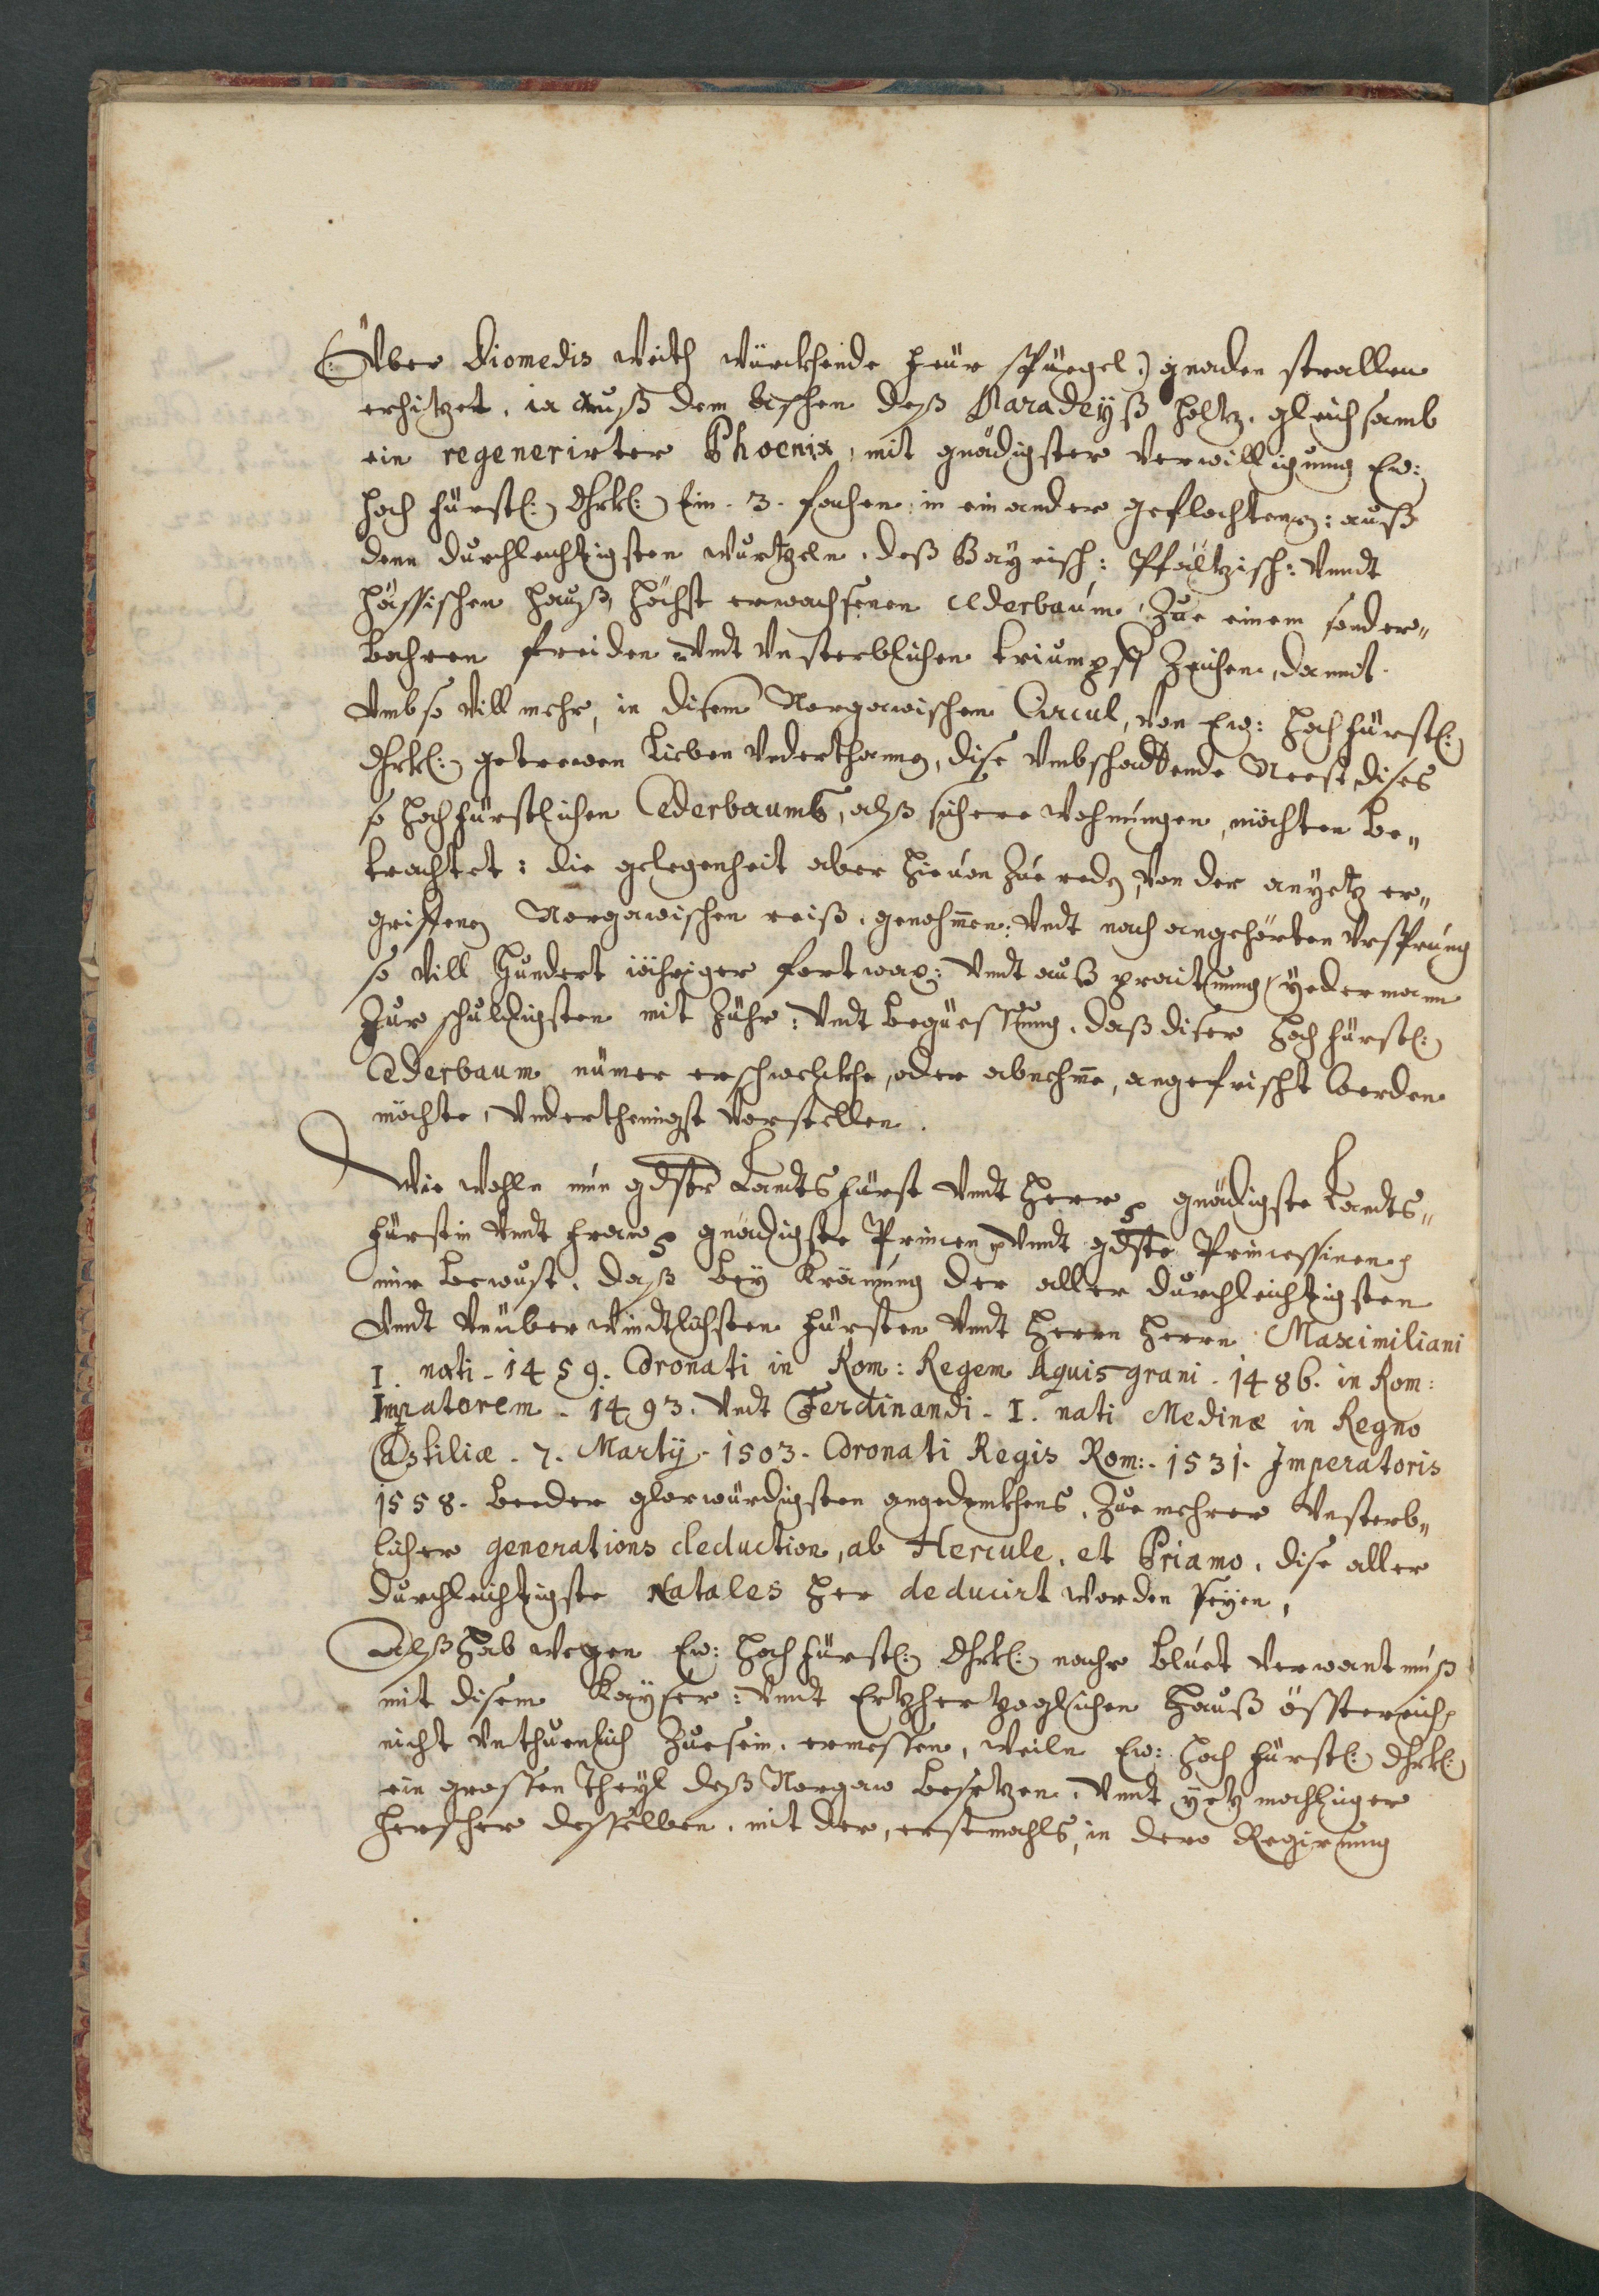 (: Über Diomedis weith würckhende feür spüegel :) gnaden strallen
erhitzet, ia auß dem Aschen deß Paradeyß holtz, gleichsamb
ein regenerirter Phoenix, mit gnädigster verwilligung Ew:
hoch fürstl: Dhrkl: Ein . 3 . fachen in ein ander geflochtenen: auß
denn durchleichtigsten wurtzeln, deß Bayrisch: Pfältzisch: vnndt
Hässischen hauß, höchst erwachsenen Cederbaum, Zue einem sonder„
bahren freiden vndt vnsterblichen triumpff Zeichen, damit
vmb so vill mehr, in disem Norgawischen Circul, von Ew: hochfürstl:
Dhrkl: getrewen lieben vnderthannen, dise vmbschadtende Neest dises
so hochfürstlichen Cederbaumß, alß sichere wohnungen, möchten be„
trachtet: die gelegenheit aber hieuon Zue reden, von der anyetz er„
griffenen Norgawischen reiß, genohmen: vndt nach angehörten vrsprung
so vill hundert iähriger fortwax: vndt auß praittung yederman
Zur schuldigsten mit Zuhr: vndt begüessung, daß diser hoch fürstl:
Cederbaum nümer erschwelckhe, oder abnehme, angefrischt werden
möchte, vnderthenigst vorstellen.
Wie wohln nun gdster Landts fürst vndt Herr, gnädigste Landts„
fürstin vndt fraw, gnädigste Princen vndt gdste Princessinen,
mir bewust, daß bey Krönung der aller durchleichtigsten
vndt vnüberwindtlichsten fürsten vndt Herrn Herrn Maximiliani
I. nati - 1459. Coronati in Rom: Regem Aquisgrani - 1486. in Rom:
Impatorem - 1493. vndt Ferdinandi - I. nati Medinæ in Regno
Castiliæ - 7. Martij - 1503 - Coronati Regis Rom: - 1531. Imperatoris
1558. beeder glorwürdigsten angedenckhens, Zue mehrer vnsterb„
licher generations deduction, ab Hercule, et Priamo, dise aller
durchleichtigste Natales her deducirt worden seyen,
Alß hab wegen Ew: hoch fürstl: Dhrkl: nacher bluet verwantnuß
mit disem Kayser: vndt Ertzhertzoglichen Hauß össterreich
nicht vnthuenlich Zue sein, ermessen, weiln Ew: hoch fürstl: Dhrkl:
ein grossen theyl deß Norgaw besetzen, vndt yetz mahliger
herscher desselben, mit der, erstmahls, in dero Regierung